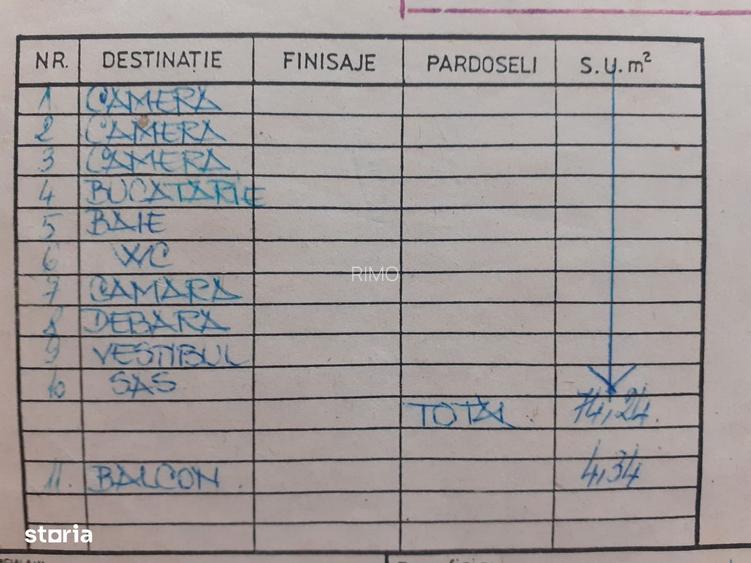 NR. DESTINAȚIE FINISAJE PARDOSELI S.U. m²
1 CAMERA
2 CAMERA
3 CAMERA
4 BUCATARIE
5 BAIE
6 WC
7 CAMARA
8 DEBARA
9 VESTIBUL
10 SAS
TOTAL 74,24
11. BALCON 4,34
RIMO
storia